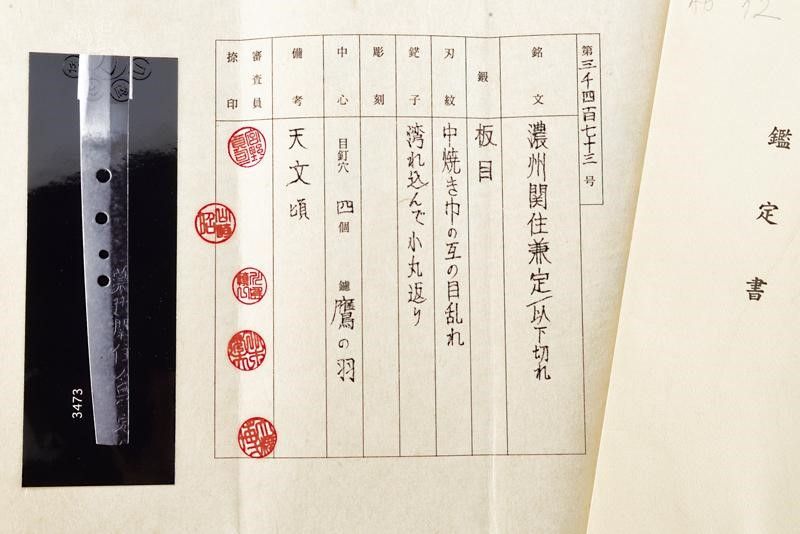 第三千四百七十三号
銘文
濃州関住兼定/以下切れ
鍛
板目
刃紋
中焼き巾の互の目乱れ
鋩子
湾れ込んで小丸返り
彫刻
中心
目釘穴 四個 鑢 鷹の羽
備考
天文頃
審査員
捺印
鑑定書
3473